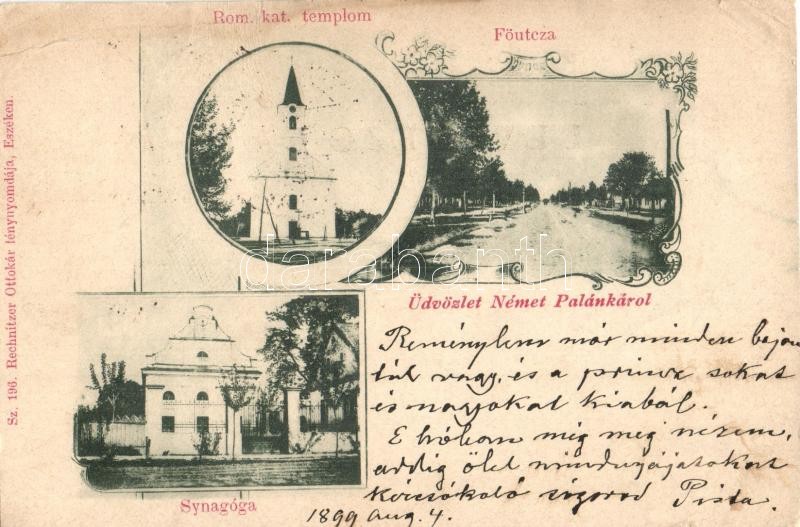 Rom. kat. templom
Főutcza
Sz. 196. Rechnitzer Ottokár fénynyomdája, Eszéken.
darabanth
Üdvözlet Német Palánkárol
Reménylem már minden bajon
túl vagy, és a princz sokat
és nagyokat kiabál.
E hóban még meg nézem,
addig ölel mindnyájatokat
kézcsókoló Pista.
Synagóga
1899 aug. 4.